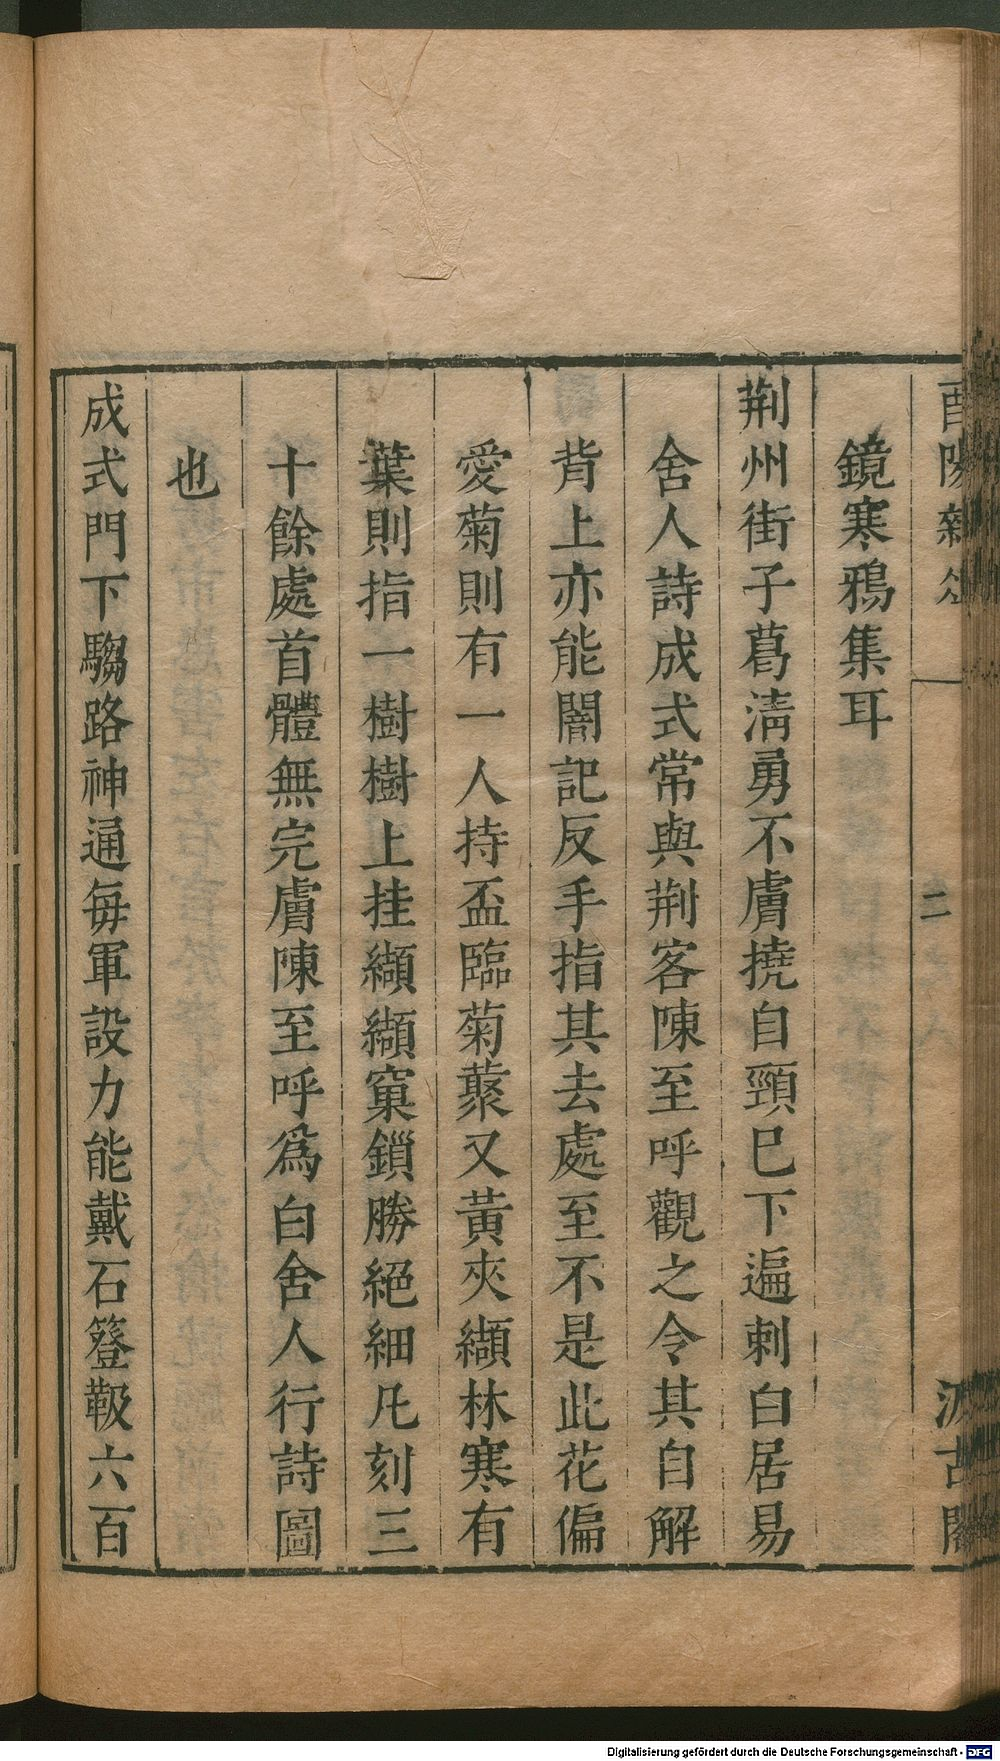 酉陽雜俎
二
汲古閣
鏡寒鴉集耳
荆州街子葛淸勇不膚撓自頸巳下遍刺白居易
舍人詩成式常與荆客陳至呼觀之令其自解
背上亦能闇記反手指其去處至不是此花偏
愛菊則有一人持盃臨菊藂又黃夾纈林寒有
葉則指一樹樹上挂纈纈窠鎖勝絕細凡刻三
十餘處首體無完膚陳至呼爲白舍人行詩圖
也
成式門下騶路神通每軍設力能戴石簦靸六百
Digitalisierung gefördert durch die Deutsche Forschungsgemeinschaft - DFG